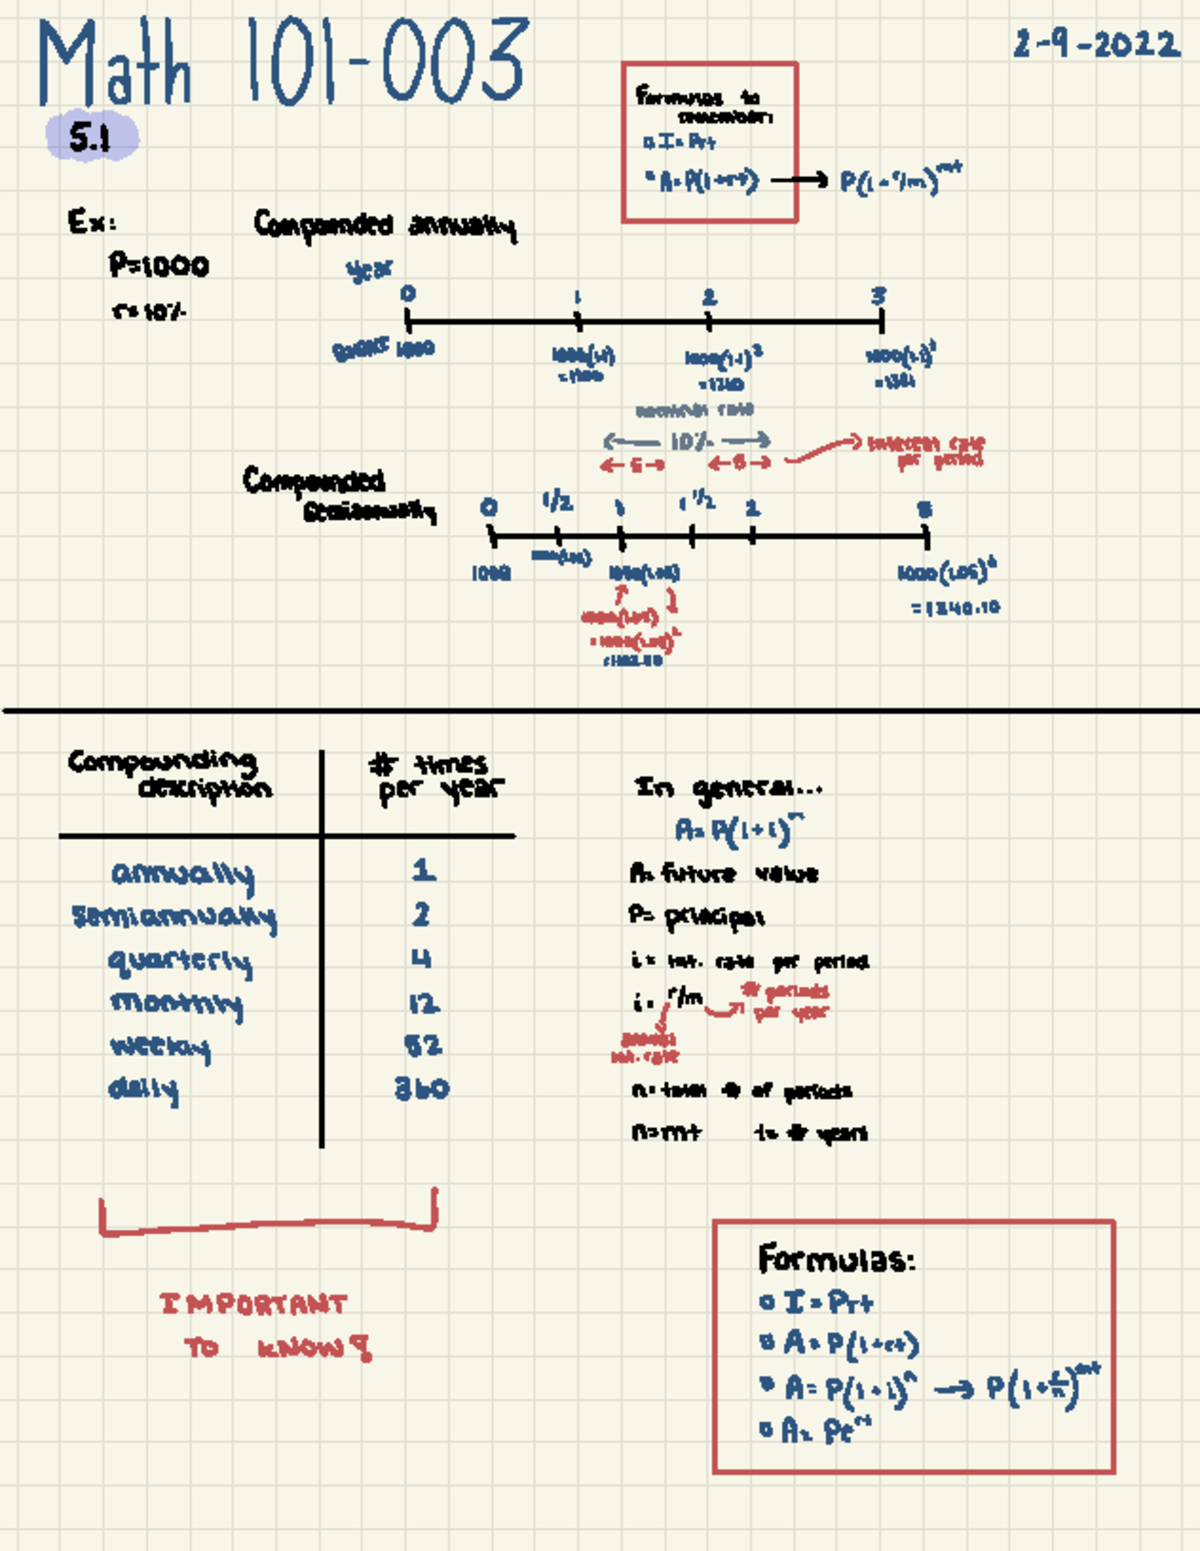 Math 101-003
2-9-2022
5.1
Formulas to
remember:
I=Prt
A=P(1+rt) → P(1+r/m)^mt
Ex:
P=1000
r=10%
Compounded annually
year
0 1 2 3
1000 1000(1.1) 1000(1.1)² 1000(1.1)³
=1100 =1210 =1331
nominal rate
← 10% →
←5→ ←5→ → interest rate
per period
Compounded
semiannually
0 1/2 1 1 1/2 2 3
1000 1000(1.05) 1000(1.05)⁶
=1340.10
1000(1.05)
=1000(1.05)²
Compounding
description
# times
per year
annually 1
semiannually 2
quarterly 4
monthly 12
weekly 52
daily 360
IMPORTANT
TO KNOW!
In general...
A=P(1+i)^n
A=future value
P=principal
i= int. rate per period
i= r/m → # periods
per year
annual
int. rate
n=total # of periods
n=mt t= # years
Formulas:
I=Prt
A=P(1+rt)
A=P(1+i)^n → P(1+r/m)^mt
A=Pe^rt